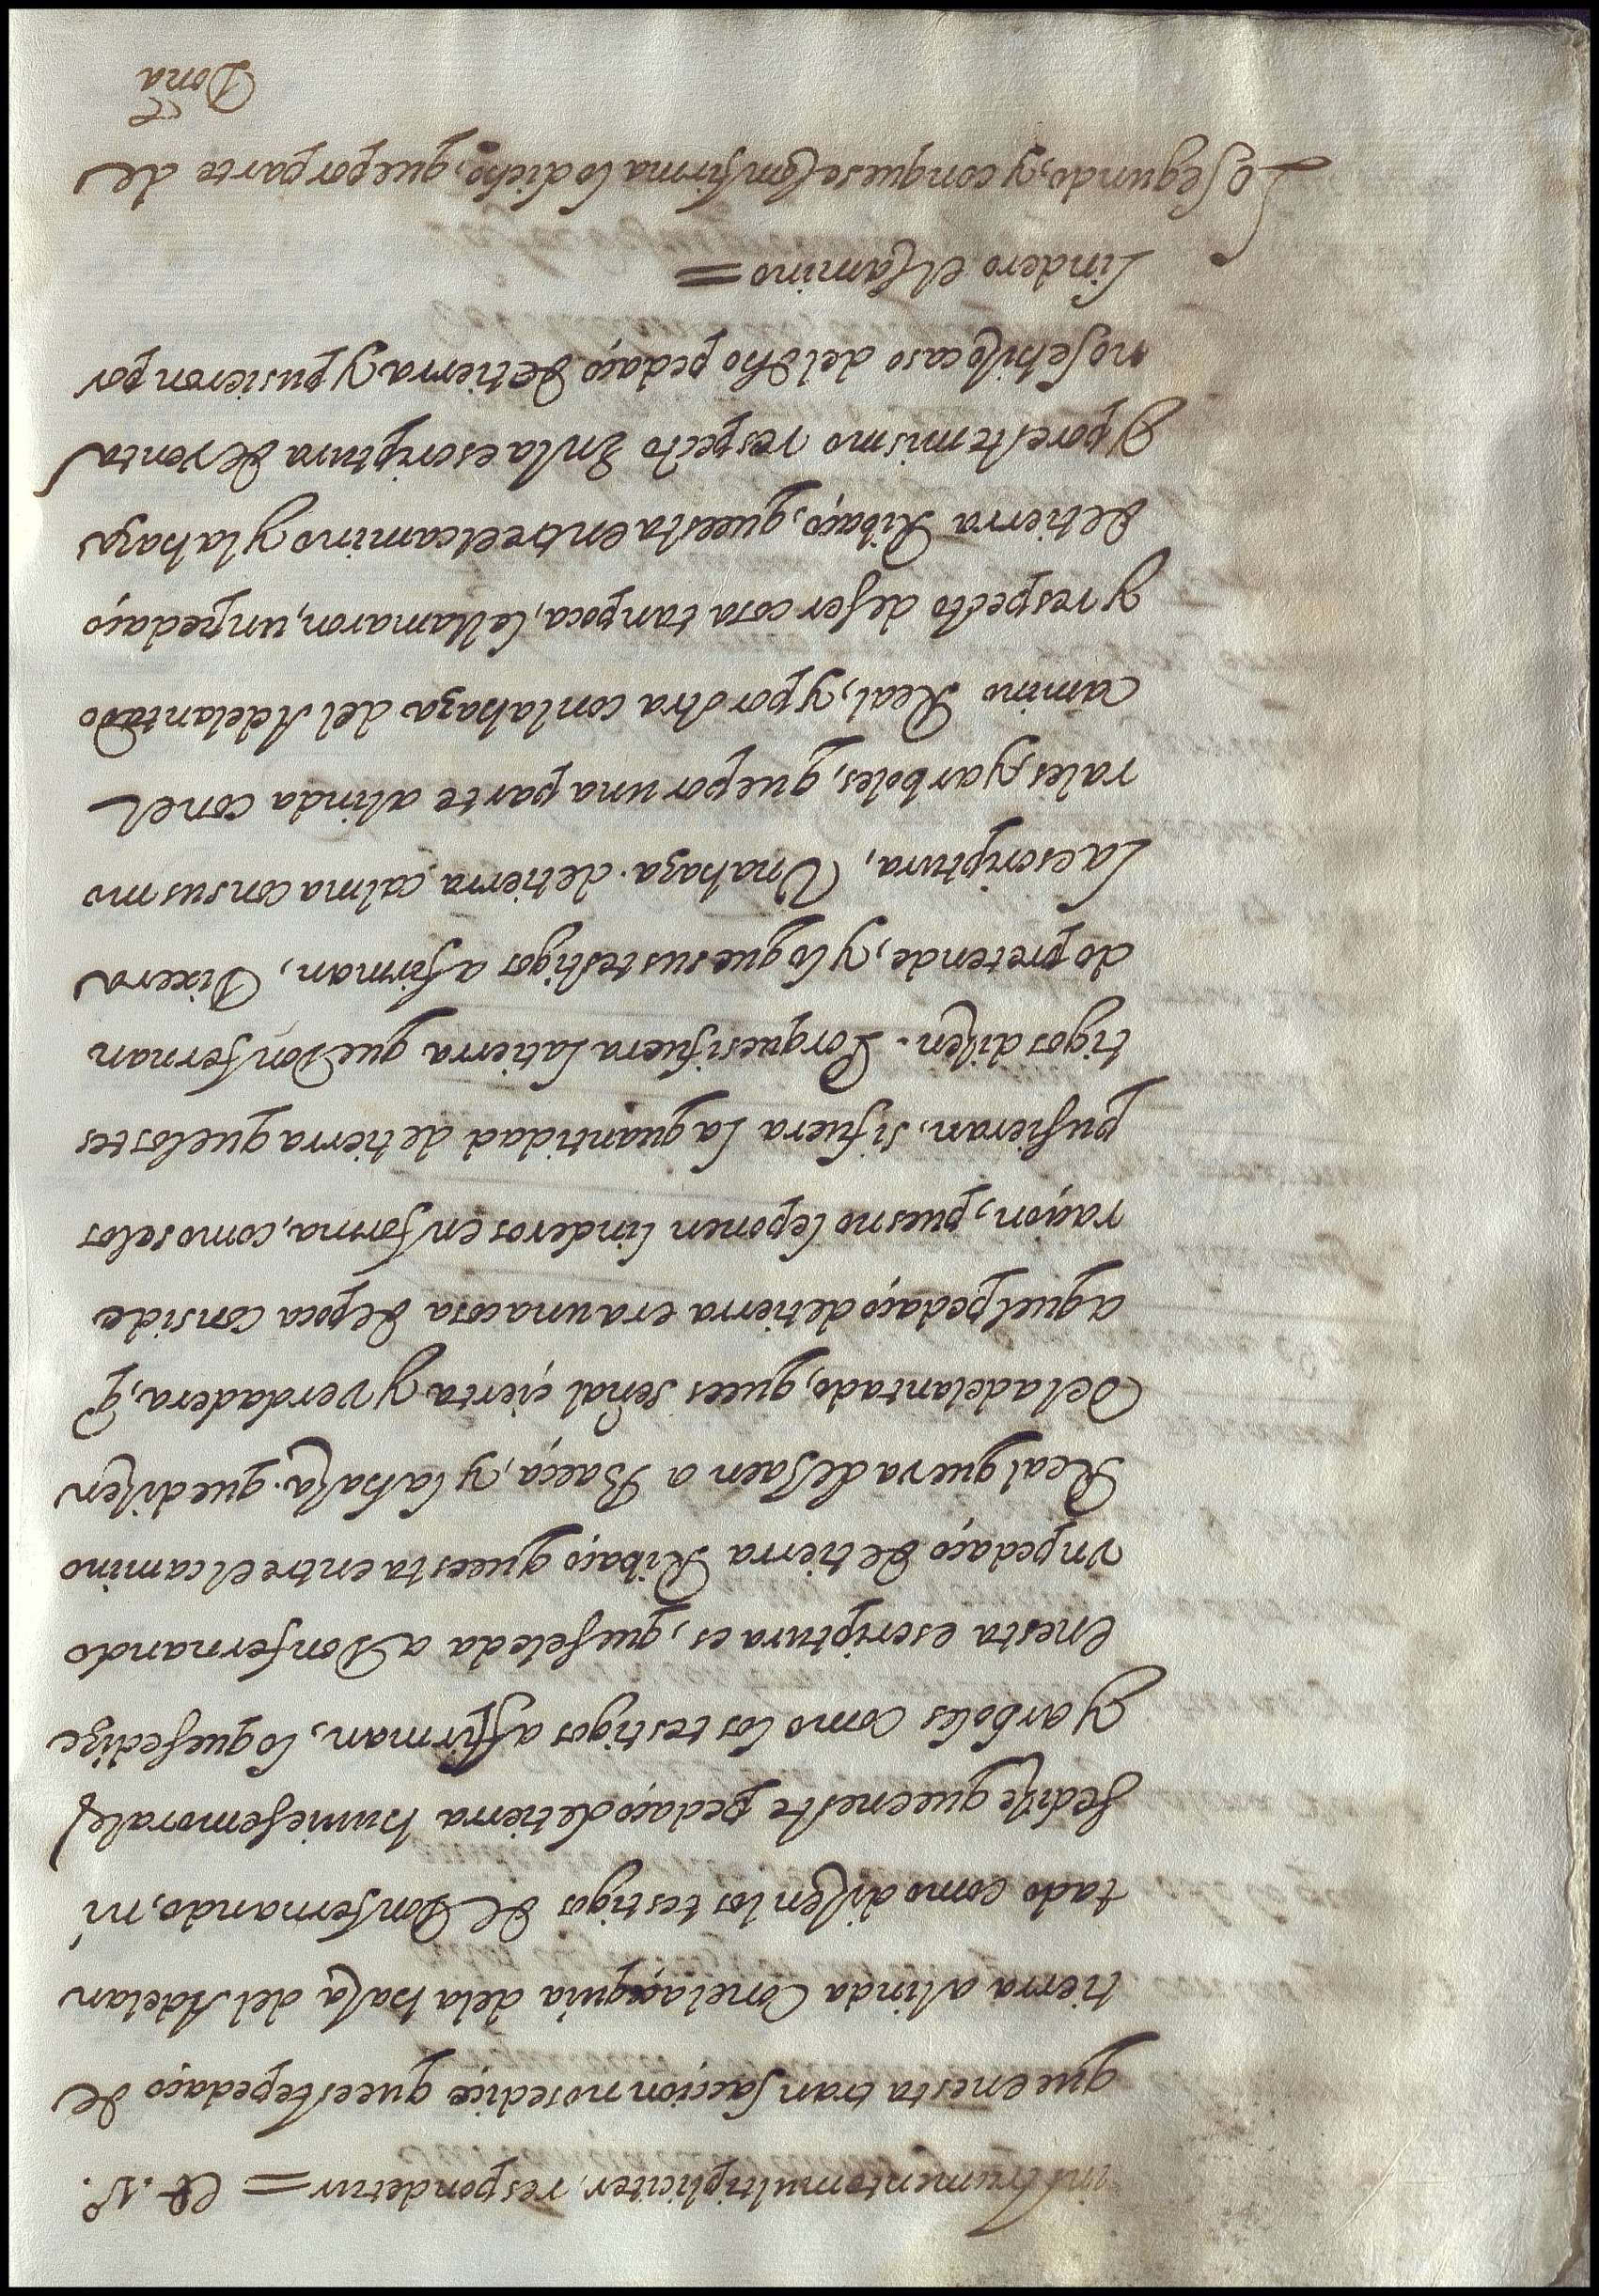 instrumento multipliciter, respondetur = Et. 1º.
que en esta transaccion no se dice que este pedaço de
tierra alinda con el açequia de la haza del Adelan
tado como dizen los testigos de Don fernando, ni
se dize que en este pedaço de tierra huuiese morales
y arboles como los testigos affirman, lo que se dize
en esta escriptura es, que se le da a Don fernando
vn pedaço de tierra Ribaço que esta entre el camino
Real que va de Jaen a Baeça, y la haza que dizen
del adelantado, que es señal çierta y verdadera, q̃
aquel pedaço de tierra era una cosa de poca conside
raçion, pues no le ponen linderos en forma, como se los
pusieran, si fuera la quantidad de tierra que los tes
tigos dizen. Porque si fuera la tierra que Don fernan
do pretende, y lo que sus testigos afirman, Dixera
La escriptura, Vna haza de tierra calma con sus mo
rales y arboles, que por una parte alinda con el
camino Real, y por otra con la haza del Adelantado
y respecto de ser cosa tan poca, le llamaron, un pedaço
de tierra Ribaço, que esta entre el camino y la haza
Y por este mismo respecto En la escriptura de venta
no se hizo caso del dho pedaço de tierra y pusieron por
Lindero el Camino =
Lo segundo, y con que se Confirma lo dicho, que por parte de
Doña